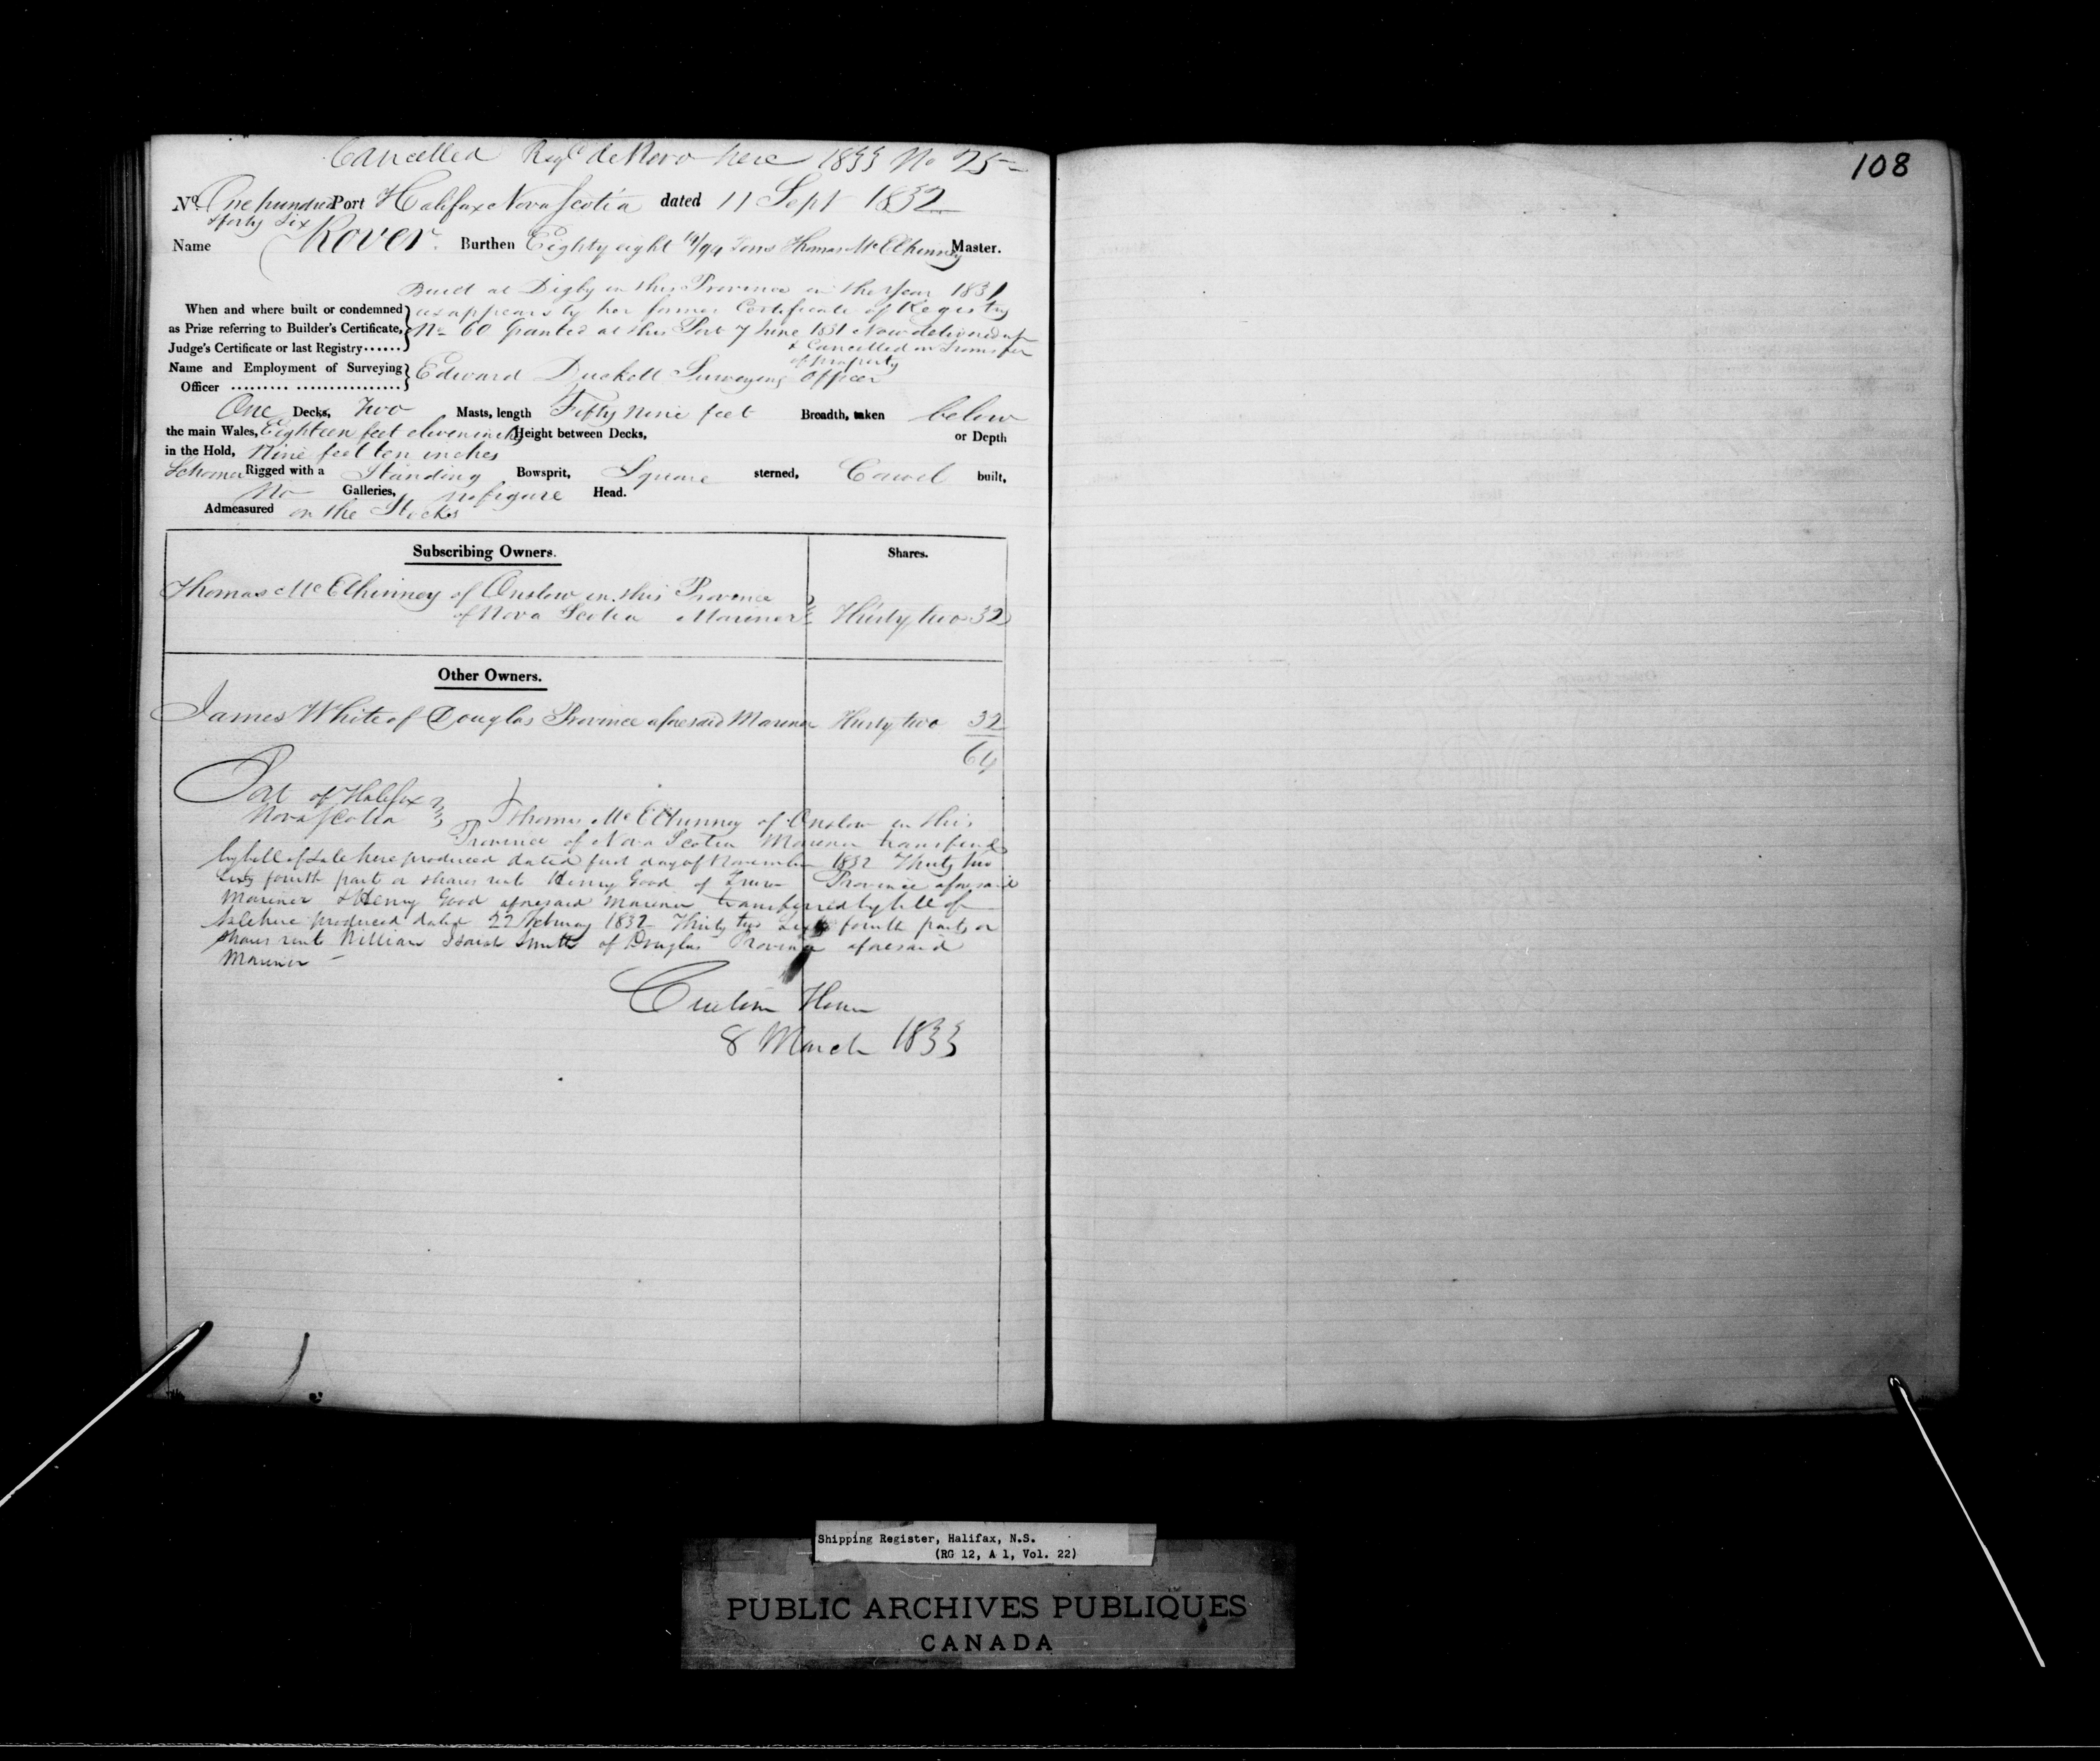 Cancelled Regd de Novo here 1833 No 25
108
No. One hundred Port Halifax Nova Scotia dated 11 Sept 1832
& forty six
Name Rover. Burthen Eighty eight /94 Tons Thomas McElhinney Master.
Built at Digby in this Province in the Year 1831
When and where built or condemned as appears by her former Certificate of Registry
as Prize referring to Builder's Certificate, No 60 Granted at this Port 7 June 1831 Now delivered up
Judge's Certificate or last Registry...... & Cancelled on Transfer
of property
Name and Employment of Surveying Edward Duckett Surveying Officer
Officer ......... ................
One Decks, Two Masts, length Fifty nine feet Breadth, taken below
the main Wales, Eighteen feet eleven inches Height between Decks, or Depth
in the Hold, Nine feet ten inches
Schooner Rigged with a Standing Bowsprit, Square sterned, Carvel built,
No Galleries, no figure Head.
Admeasured on the Stocks
Subscribing Owners. Shares.
Thomas McElhinney of Onslow in this Province
of Nova Scotia Mariner Thirty two 32
Other Owners.
James White of Douglas Province aforesaid Mariner Thirty two 32
64
Port of Halifax
Nova Scotia Thomas McElhinney of Onslow in this
Province of Nova Scotia Mariner transferred
by bill of sale here produced dated first day of November 1832 Thirty two
Sixty fourth part or shares unto Henry Good of Truro Province aforesaid
Mariner & Henry Good aforesaid Mariner transferred by bill of
sale here produced dated 22 February 1832 Thirty two Sixty fourth parts or
shares unto William Smith of Douglas Province aforesaid
Mariner
Custom House
8 March 1833
Shipping Register, Halifax, N.S.
(RG 12, A 1, Vol. 22)
PUBLIC ARCHIVES PUBLIQUES
CANADA